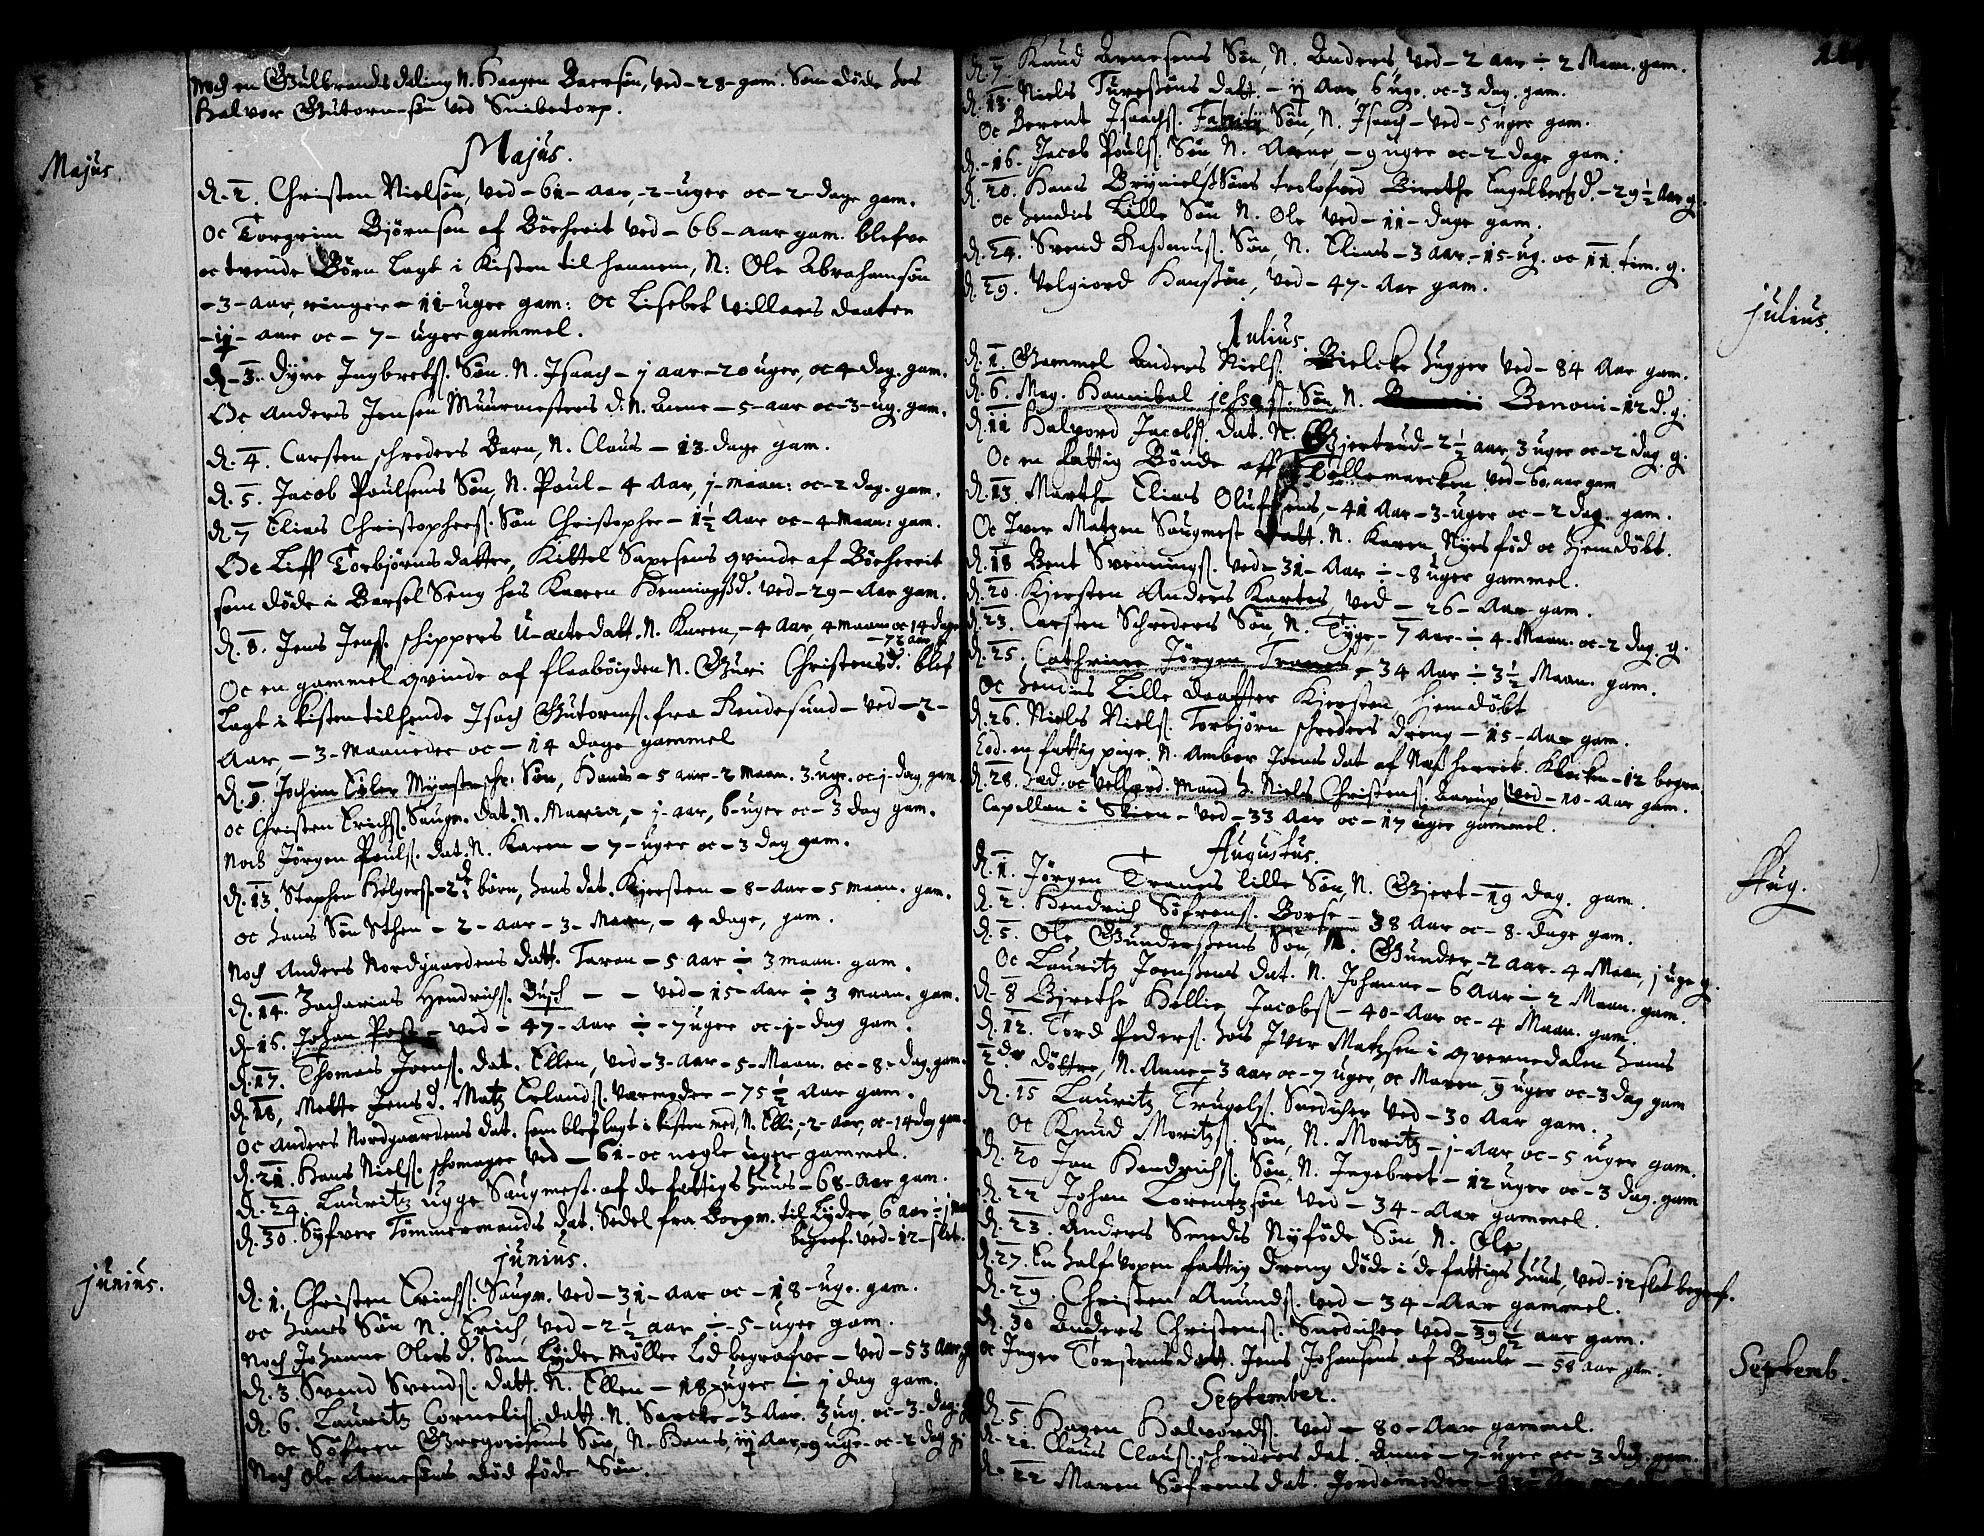 Noch en Gulbrands daling N. Haagen Baersøn, ved - 28 - gam. Som døde hos
Halvor Gutormsøn ved Snibetorp.
Majus.
Majus.
d. 2. Christen Nielsøn, ved - 61 - aar, - 2 - uger oc - 2 - dage gam.
Oc Torgrim Bjørnsøn af Böcherit ved - 66 - aar gam. blefve
oc tvende Börn lagt i Kisten til hannem, N: Ole Abrahamsøn
- 3 - aar, ringer - 11 - uger gam: Oc Lisebet Willars daater
- ij - aar oc - 7 - uger gammel.
d. 3. Dyre Ingbretss. Søn. N. Isaach - j aar - 20 uger, oc 4 dag. gam.
Oc Anders Jensen Muurmesters d. N. Anne - 5 - aar oc - 3 - ug. gam.
d. 4. Carsten schreders Barn, N. Claus - 13 - dage gam.
d. 5. Jacob Poulsens Søn, N. Poul - 4 Aar, j - maan: oc - 2 dag. gam.
d. 7 Elias Christophers. Søn Christopher - 1½ Aar oc - 4 - Maan: gam.
Oc Liff Torbjørns datter, Kittel Saxesens qvinde af Böcherit
som døde i Barsel Seng hos Karen Henningsd. ved - 29 - Aar gam.
d. 8. Jens Jenss. schippers U-acte datt. N. Karen, - 4 Aar, 4 maan oc 14 dage
Oc en gammel qvinde af flaabøigden N. Guri Christensd. - 72 aar g. blef
Lagt i kisten til hende Isach Gutorms. fra Kendesund - ved - 2 -
Aar - 3 - Maaneder oc - 14 dage gammel
d. 9. Jochim Eiler Mynster schr. Søn, Hans - 5 aar - 2 maan. 3. uge. oc - j - dag, gam
oc Christen Erichs. Saugm. dat. N. Maria, - j - aar, 6 - uger oc - 3 dag gam.
Noch Jørgen Pouls. dat. N. Karen - 7 - uger oc - 3 dag gam.
d. 13. Stephen Holgers. - 2de börn, hans dat. Kjersten - 8 - Aar - 5 maan. gam.
oc hans Søn Sthen - 2 - aar - 3 - Maan, - 4 dage, gam.
Noch Anders Nordgaardens datt. Taron - 5 aar ÷ 3 maan. gam.
d. 14. Zacharias Hendrichs. Busch - - ved - 15 - Aar ÷ 3 maan. gam.
d. 16. Johan Post - ved - 47 - Aar ÷ - 7 uger oc - j - dag gam.
d. 17. Thomas Joens. dat. Ellen, ved - 3 - aar - 5 - Maan. oc - 8 - dag. gam.
d. 18. Mette Jens d. Matz Erlands. Varmoder - 75½ Aar gam.
Oc anders Nordgaardens dat. som blef lagt i kisten med, N. Elli, - 2 - aar, oc - 14 dag gam.
d. 21. Hans Niels. schomager ved - 61 - oc nogle uger gammel.
d. 24. Lauritz ugge Saugmest. af de fattigs huus - 68 - Aar gam.
d. 30. Syfver Tømmermands dat. Sedel fra Borgm. til Lyder, 6 aar ÷ j
begraf. ved - 12 - slet.
junius.
junius.
d. 1. Christen Erichs. Saugm. ved - 31 - Aar oc - 18 - uge. gam.
oc hans Søn N. Erich, ved - 2½ aar ÷ - 5 - uger gam.
Noch Johanne Olers d. som Lyder Møller lod begrafve - ved - 53 Aar g.
d. 3 Svend Svends. datt. N. Ellen - 18 - uger ÷ j dag gam.
d. 6. Lauritz Cornelis. datt. N. Sarche - 3 - Aar. 3 ug. oc - 3 - dag. g
oc Söfren Gregorisens Søn, N. Hans, iij Aar, 9 uge. oc - 2 dag g.
Noch Ole Arnesens død föde Søn.
d. 7. Knud Arnesens Søn, N. Anders, ved - 2 aar ÷ 2 Maan. gam.
d. 13. Niels Turesøns datt. - ij Aar, 6 uge. oc - 3 dag. gam.
Oc Berent Isaachs. Søn, N. Isaach - ved - 5 uger gam.
d. 16. Jacob Pouls. Søn, N. Aarne, - 9 uger oc - 2 dage gam.
d. 20. Hans Brynielss Søns trolofved Birethe Engelbertsd. - 29½ Aar g.
oc hendis Lille Søn N. Ole ved - 11 - dage gam.
d. 24. Svend Rasmus. Søn, N. Elias - 3 aar. - 15 - ug. oc 11 tim. g.
d. 29. Velgiord Hansøn, ved - 47 - Aar gam.
Julius.
julius.
d. 1 Gammel Anders Niels. Bielcke hugger ved - 84 Aar gam.
d. 6. Mag. Hannibal jess. Søn, N. Benoni - 12 d. g.
d. 11 Halvord Jacobs. dat. N. Gjertrud - 2½ aar, 3 uger oc - 2 dag. g.
Oc en fattig Bonde aff Tellemarcken ved - 60 aar gam
d. 13. Marthe Elias Olufsens, - 41 Aar - 3 - uger oc - 2 dag. gam.
Oc Iver Matzen Saugmest. datt. N. Karen Nyes föd oc hjemdöbt.
d. 18 Bent Svennings. ved - 31 - Aar ÷ - 8 uger gammel.
d. 20. Kjersten Anders Kartes, ved - 26 - Aar gam.
d. 23. Carsten Schreders Søn, N. Tyge, - 7 aar ÷ 4 - Maan. oc - 2 dag. g.
d. 25. Cathrine Jörgen Tranes, - 34 Aar ÷ 3½ Maan. gam.
Oc hendis Lille daatter Kjersten, hjemdöbt
d. 26. Niels Niels. Torbjørn schreders dreng - 15 - Aar gam.
Eod. en fattig pige N. Amber Joens dat af Nesherrit. Klocken - 12 begra
d. 28. hæd. oc Vellærd. Mand h. Niels Christens. Aarup ved - 10 - Aar gam.
Capellan i Skien - ved - 33 Aar oc - 17 uger gammel.
Augustus.
Aug.
d. 1. Jørgen Tranes lille Søn, N. Gjert - 19 dag. gam.
d. 2. Hendrich Söfrens. Borse - 38 Aar oc - 8 - dage gam.
d. 5. Ole Gundersens Søn, N. Gunder - 2 aar. 4 Maan, j uge g.
Oc Lauritz Joensens dat. N. Johanne - 6 Aar ÷ 2 Maan. gam.
d. 8 Birethe Hellie Jacobs. - 40 - Aar oc - 4 Maan. gam.
d. 12. Tord Peders. hos Iver Matzsen i qvernedalen hans
2de Döttre, N. Anne - 3 aar oc - 7 uger, oc Maren 9 uger oc - 3 dag gam
d. 15 Lauritz Trugels. Snedicher ved - 30 Aar gam.
Oc Knud Moritz. Søn, N. Moritz - j - Aar oc - 5 uger gam.
d. 20 Jan Hendrichs. Søn, N. Ingebret - 12 uger oc - 3 dag. gam
d. 22 Johan Lorentzsøn ved - 34 - Aar gammel.
d. 23. Anders Smeds Nyföde Søn, N. Ole
d. 27. En half voxen fattig dreng døde i de fattiges huus, ved - 12 slet begraf.
d. 29. Christen Amunds. ved - 34 - Aar gammel.
d. 30 Anders Christens. Snedicher ved - 39½ aar gam.
oc Inger Torstens datt. Jens Johansens af Bamle - 58 aar gam.
September.
Septemb.
d. 5. Hagen Halvords. ved - 80 - Aar gammel.
d. 21. Claus Claus. schreders dat. Anne - 7 - uger oc - 3 dag. gam.
d. 22 Maren Söfrens dat. Jordemoder